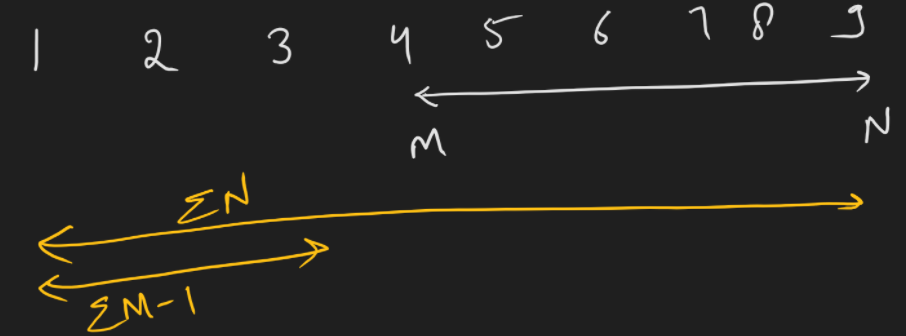 1 2 3 4 5 6 7 8 9
M N
ΣN
ΣM-1